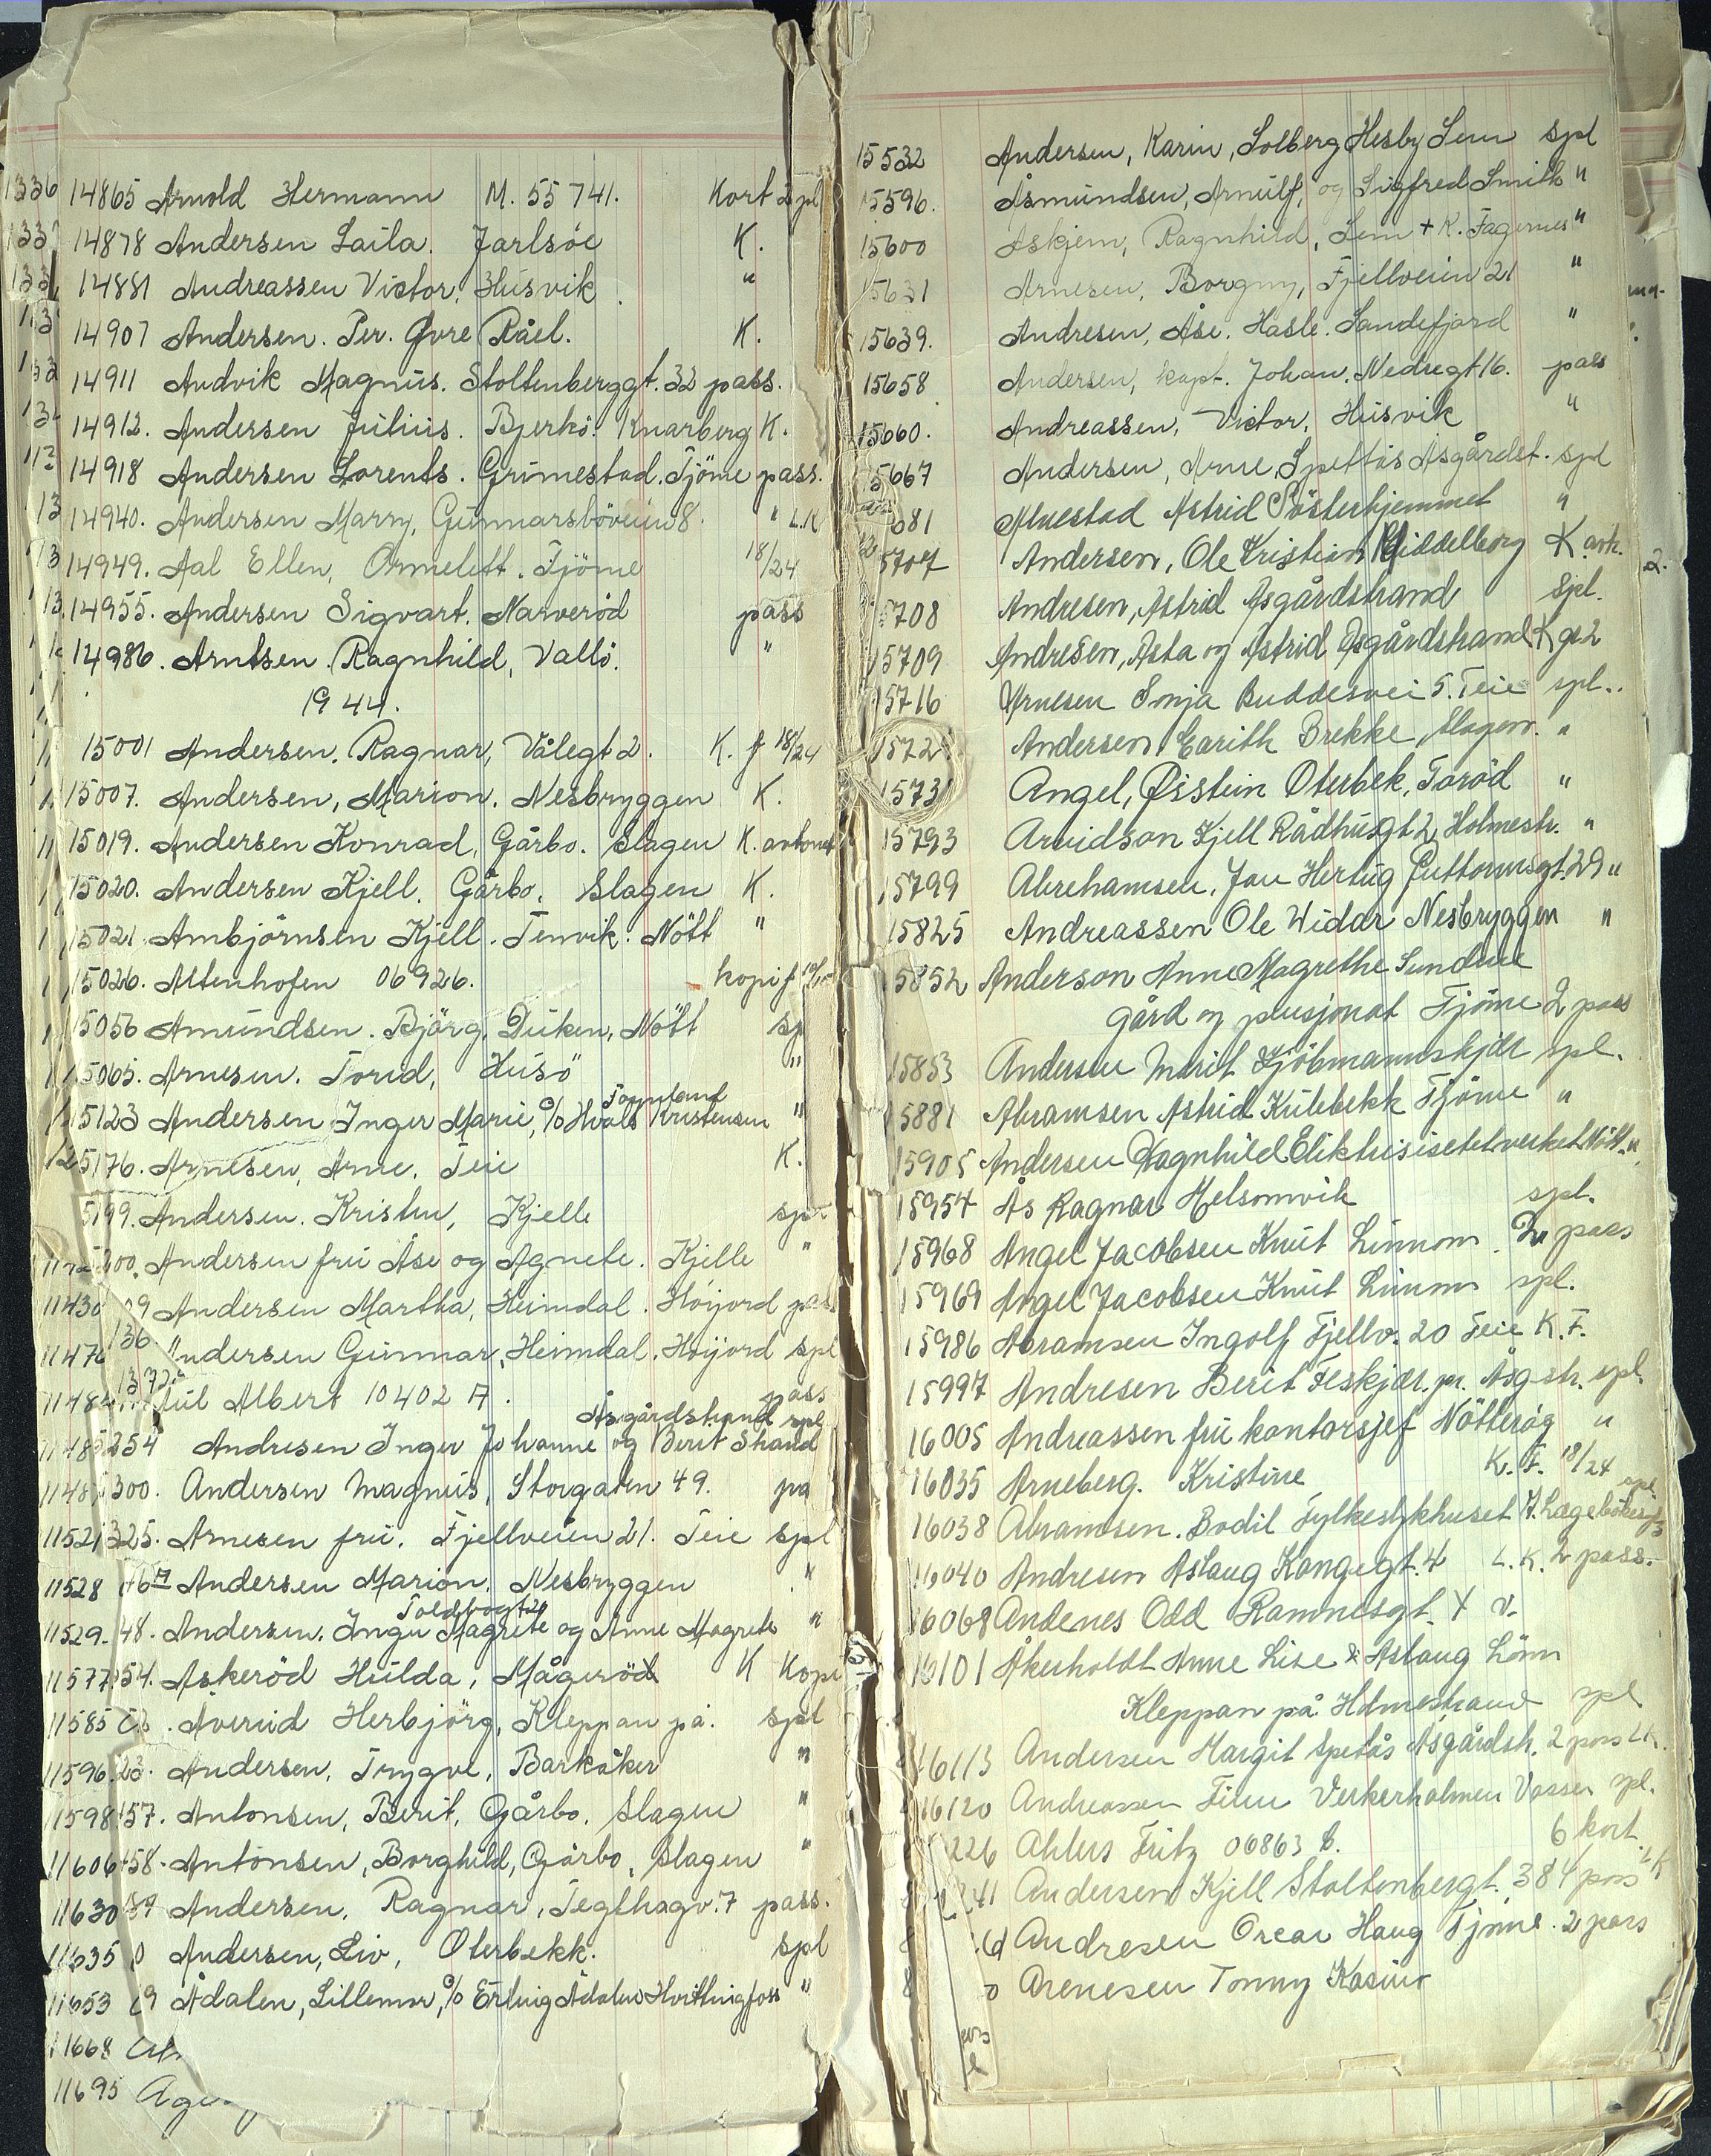 14865 Arnold Hermann M. 55 741. Kort 2 pl
14878 Andersen Laila. Jarlsöe K.
14881 Andreassen Victor. Husvik "
14907 Andersen. Per. Øvre Råel. K.
14911 Andvik Magnus. Stoltenberggt. 32 pass.
14912. Andersen Julius. Bjerkö. Knarberg K.
14918 Andersen Lorents. Grimestad. Tjöme pass.
14940. Andersen Marry, Gunnarsböveien 8. " L.K
14949. Aal Ellen, Ormelett. Tjöme 18/24
14955. Andersen Sigvart. Narveröd pass
14986. Arntsen. Ragnhild, Vallö. "
1944.
15001 Andersen. Ragnar, Vålegt 2. K. f 18/24
15007. Andersen, Marion. Nesbryggen K.
15019. Andersen Konrad, Gårbo. Slagen K.
15020. Andersen Kjell. Gårbo. Slagen K.
15021. Ambjörnsen Kjell. Tenvik. Nött "
15026. Altenhofen 06926. kopi f
15056 Amundsen. Bjørg, Duken, Nött sp
15065. Arnesen. Torid, Husö "
Tømland
15123 Andersen Inger Marie, c/o Hvals Kristensen "
15176. Arnesen, Arne. Teie K.
5199. Andersen. Kristen, Kjelle spl
200. Andersen frú Åse og Agnete. Kjelle "
11430 09 Andersen Martha, Heimdal. Höijord pas
11476 136. Andersen Gunnar, Heimdal. Höijord spl
Albert 10402 A. pass
Åsgårdstrand spl
1148 5254 Andresen Inger Johanne og Berit Strand
1148 300. Andersen Magnus, Storgaten 49. pa
11521 325. Arnesen frú. Fjellveien 21. Teie spl
11528 Andersen Marion. Nesbryggen "
11529. 48. Andersen. Inger Magrete og Anne Magrete "
11577 54. Askeröd Hulda, Mågeröd K Kopi
11585 Åverud Herbjörg, Kleppan pá. spl
11596 23. Andersen, Trygve, Barkåker "
11598 457. Antonsen, Berit, Gårbo. Slagen "
11606 458. Antonsen, Borghild, Gårbo, Slagen "
11630 59 Andersen. Ragnar, Teglhagv. 7 pass.
11635 0 Andersen, Liv, Oterbekk. spl
11653 69 Ådalen, Lillemor, c/o Erling Ådalen Hvittingfoss "
11668
11695 Age
15532 Andersen, Karin, Solberg Hesby Sem spl
15596. Åsmundsen, Arnulf, og Sigfred Smith "
15600 Askjem, Ragnhild, Sem + K. Fagernes "
15631 Arnesen, Borgny, Fjellveien 21 "
15639. Andresen, Åse. Hasle. Sandefjord "
15658 Andersen, kapt. Johan. Nedregt 16. pass
15660. Andreassen, Victor, Husvik "
15667 Andersen, Arne, Spettås Åsgårdst. spl
681 Alvestad Astrid Søsterhjemmet "
5707 Andersen, Ole Kristian Middelborg K avk.
5708 Andresen, Astrid Åsgårdstrand spl.
15709 Andresen, Asta og Astrid Åsgårdstrand K gr 2
15716 Arnesen Sonja Buddesvei 5. Teie spl.
1572 Andersen Earith Brekke, Slagen. "
1573 Angel, Øistein Oterbek, Toröd "
15793 Arvidson Kjell Rådhusgt 2 Holmestr. "
15799 Abrehamsen, Jan Hertug Guttormsgt. 29 "
15825 Andreassen Ole Widar Nesbryggen "
15852 Anderson Anne Magrethe Sundene
gård og pensjonat Tjöme 2 pass
15853 Andersen Marit Kjöbmannskjær spl.
15881 Abramsen Astrid Kulebekk Tjöme "
15905 Andersen Ragnhild Elektrisitetsverket Nött. "
15954 Ås Ragnar Melsomvik spl.
15968 Angel Jacobsen Knut Linnom. 2 pass
15969 Angel Jacobsen Knut Linnom spl.
15986 Abramsen Ingolf Fjellv. 20 Teie K.F.
15997 Andresen Berit Feskjær. pr. Åsg.str. spl.
16005 Andreassen frú kontorsjef Nötteröy "
16035 Arneberg. Kristine K.F. 18/24
16038 Abramsen. Bodil Fylkesykhuset spl
16040 Andresen Aslaug Kongegt. 4 L.K. 2 pass.
16068 Andenes Odd Ramnesgt. 4 v.
16101 Åkerholdt Anne Lise & Aslaug Lönn
Kleppan på Holmestrand spl
16113 Andersen Margit Spetås Åsgårdstr. 2 pass LK.
16120 Andreassen Finn Verkerholmen Vasser spl.
226 Ahlers Fritz 06863 C. 6 kort.
241 Andersen Kjell Stoltenbergt. 38 4 pass LK
Andresen Oscar Haug Tjöme. 2 pass
Arenesen Tommy Kasino